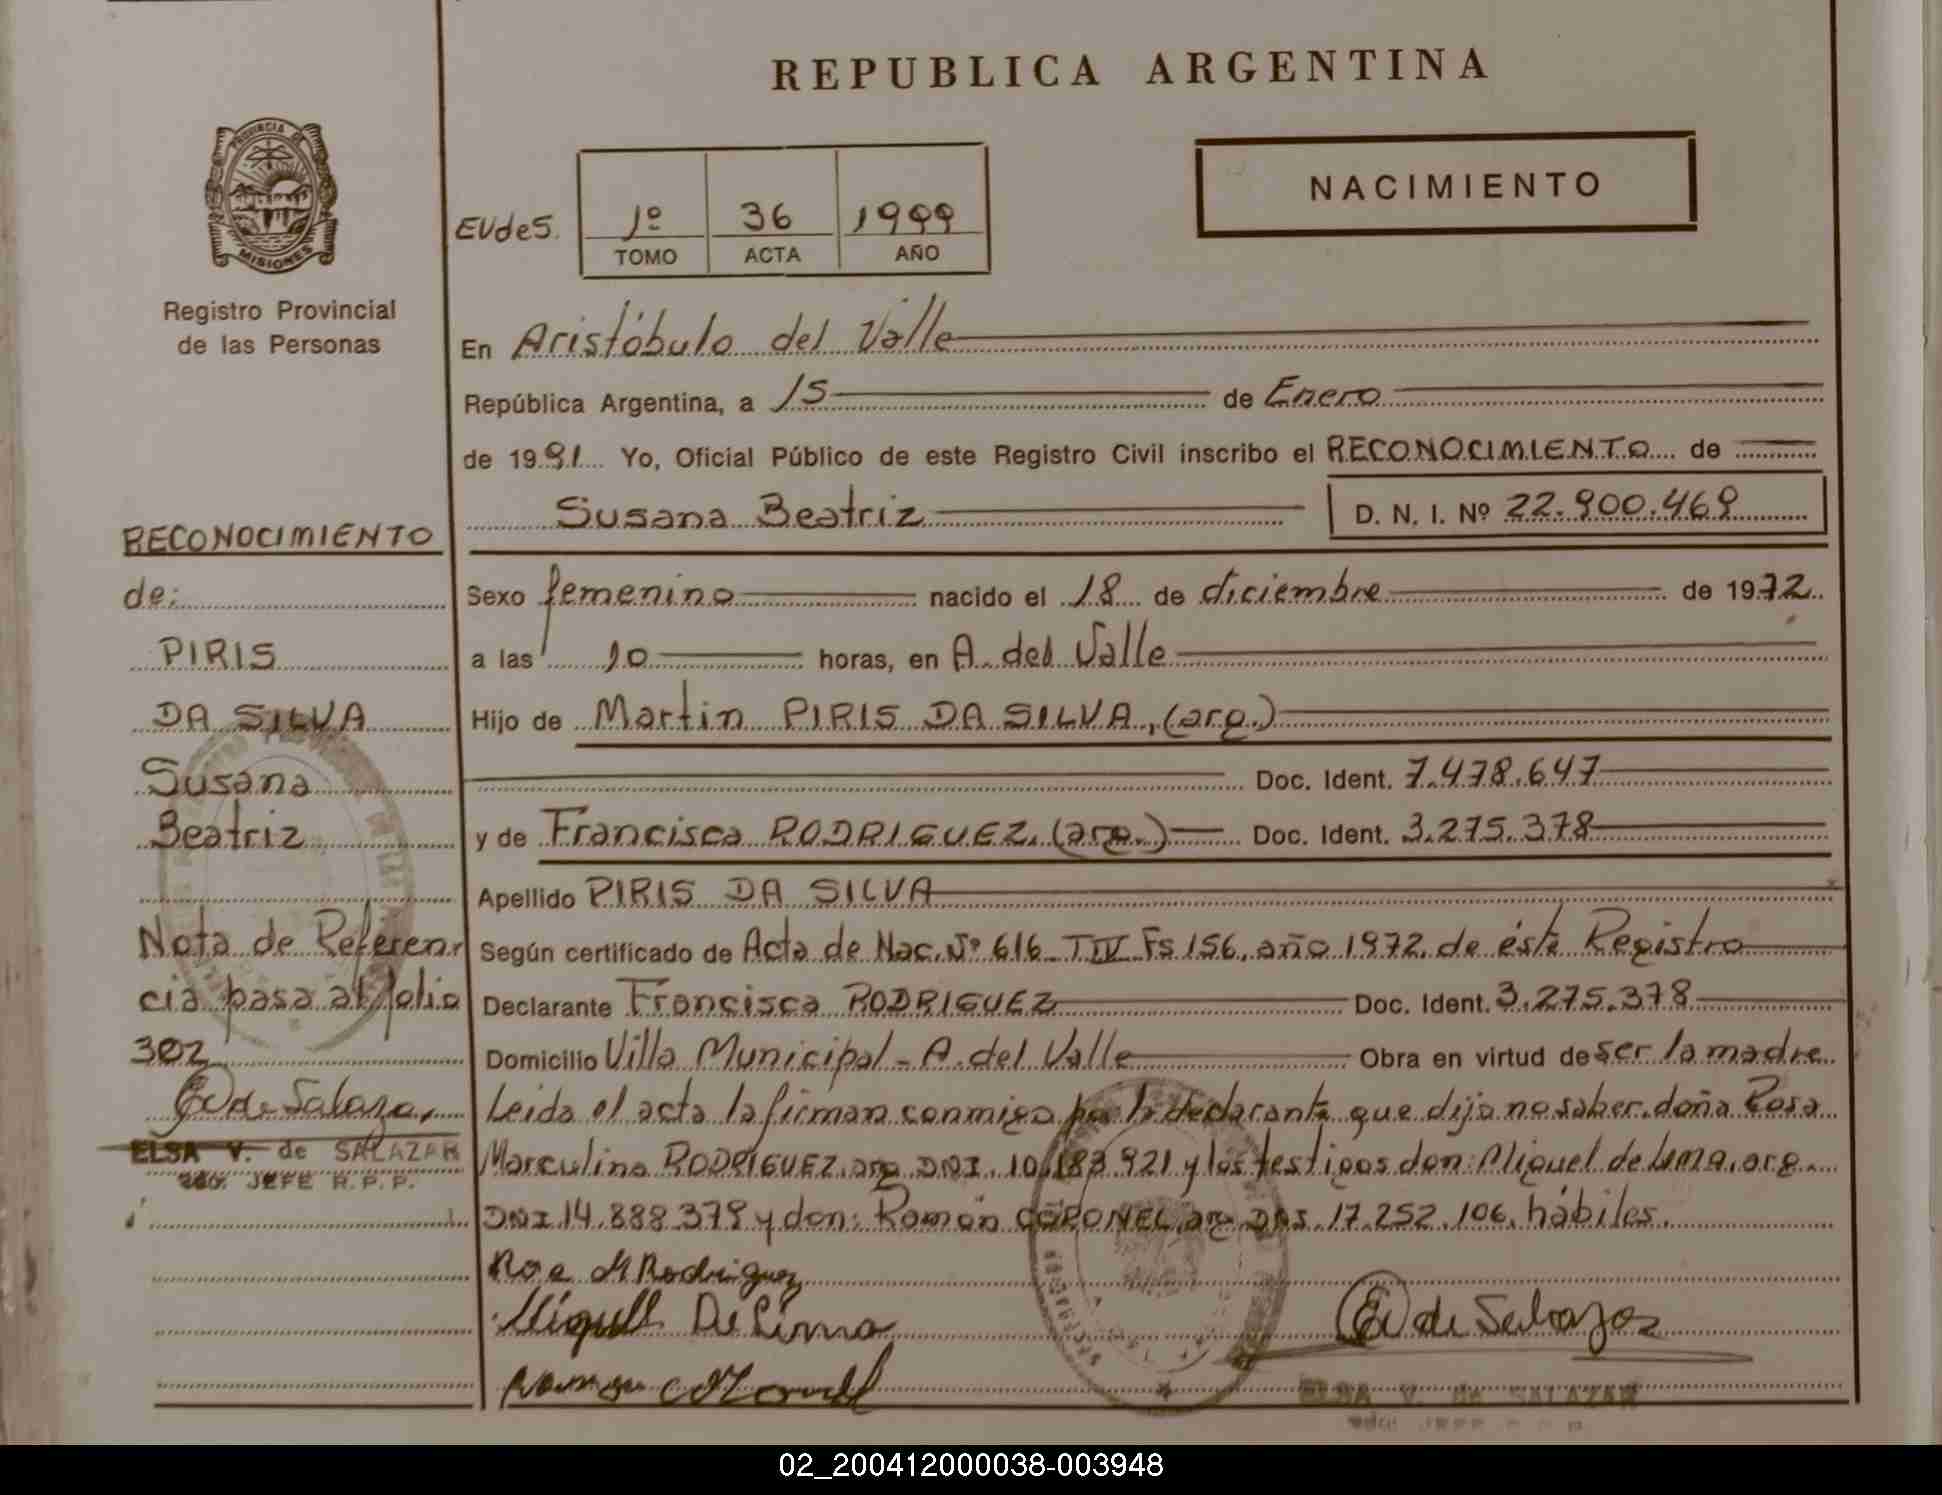 REPUBLICA ARGENTINA
PROVINCIA D
MISIONES
Registro Provincial
de las Personas
EVdeS.
1º 36 1999
TOMO ACTA AÑO
NACIMIENTO
En Aristóbulo del Valle
República Argentina, a 15 de Enero
de 1991 Yo, Oficial Público de este Registro Civil inscribo el RECONOCIMIENTO de
Susana Beatriz D. N. I. Nº 22.900.469
Sexo femenino nacido el 18 de diciembre de 1972
a las 10 horas, en A. del Valle
Hijo de Martin PIRIS DA SILVA, (arg.)
Doc. Ident. 7.478.647
y de Francisca RODRIGUEZ, (arg.) Doc. Ident. 3.275.378
Apellido PIRIS DA SILVA
Según certificado de Acta de Nac. Nº 616 T IV Fs 156, año 1972, de éste Registro
Declarante Francisca RODRIGUEZ Doc. Ident. 3.275.378
Domicilio Villa Municipal - A. del Valle Obra en virtud de ser la madre
Leida el acta la firman conmigo por la declarante que dijo no saber, doña Rosa
Marculina RODRIGUEZ, arg. DNI. 10.183.921 y los testigos don: Miguel de Lima, arg.
DNI 14.888.379 y don: Ramón CORONEL, arg. DNI. 17.252.106, hábiles.
Rosa M Rodriguez
Miguel De Lima
EV de Salazar
ELSA V. de SALAZAR
JEFE
RECONOCIMIENTO
de:
PIRIS
DA SILVA
Susana
Beatriz
Nota de Referen-
cia pasa al folio
302
EV de Salazar
ELSA V. de SALAZAR
JEFE R.P.P.
02_200412000038-003948